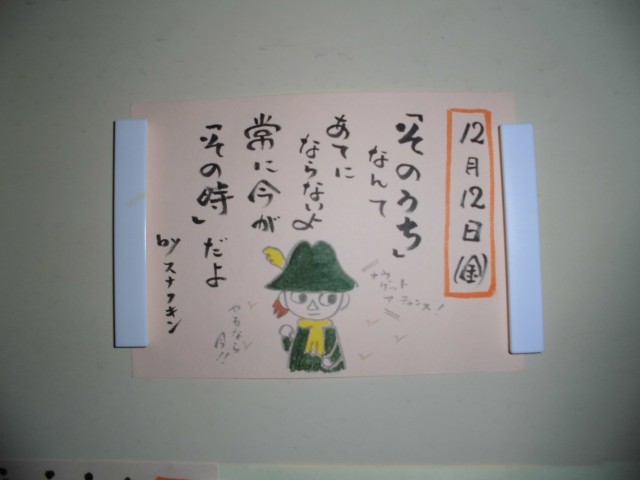 12月12日(金)
「そのうち」
なんて
あてに
ならないよ
常に今が
「その時」だよ
byスナフキン
ナウ
ゲット
ア
チャンス!
やるなら
今!!